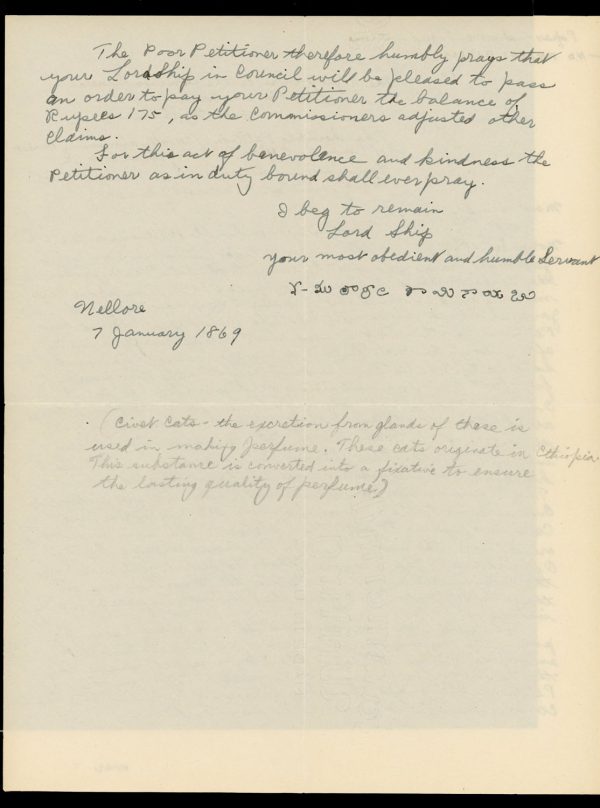 The Poor Petitioner therefore humbly prays that
your LordShip in Council will be pleased to pass
an order to pay your Petitioner the balance of
Rupees 175, as the Commissioners adjusted other
Claims.
For this act of benevolence and kindness the
Petitioner as in duty bound shall ever pray.
I beg to remain
Lord Ship
your most obedient and humble Servant
Nellore
7 January 1869
(Civet Cats - the excretion from glands of these is
used in making perfume. These cats originate in Ethiopia.
This substance is converted into a fixative to ensure
the lasting quality of perfume)